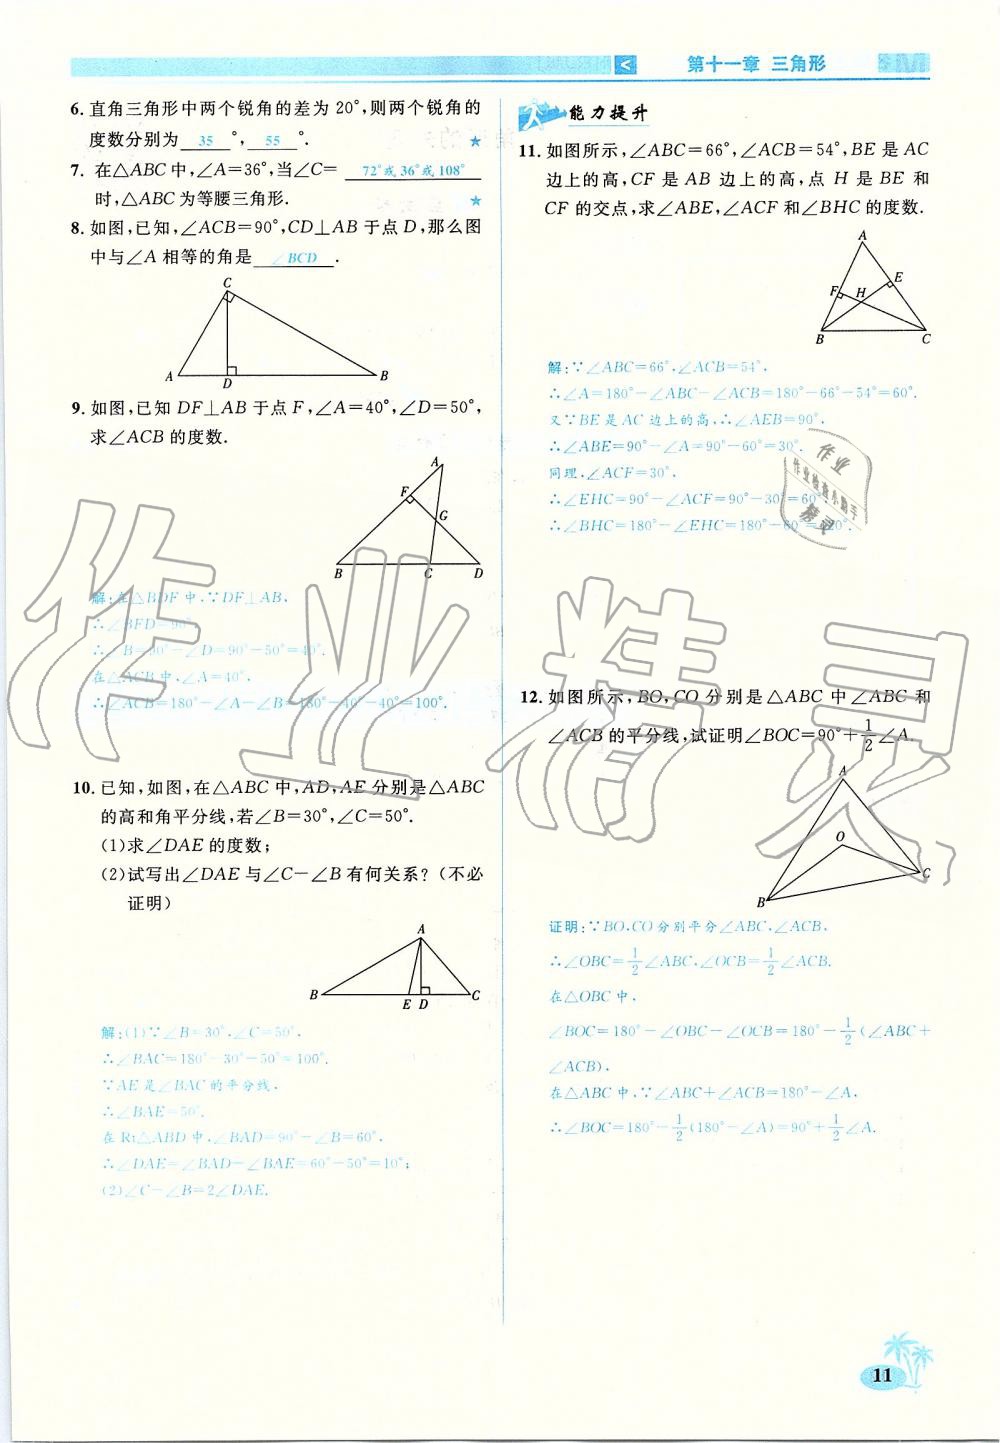 第十一章 三角形
6. 直角三角形中两个锐角的差为 20°,则两个锐角的
度数分别为 35 °, 55 °. ★
7. 在△ABC 中,∠A=36°,当∠C= 72°或36°或108°
时,△ABC 为等腰三角形. ★
8. 如图,已知,∠ACB=90°,CD⊥AB 于点 D,那么图
中与∠A 相等的角是 ∠BCD .
C
A D B
9. 如图,已知 DF⊥AB 于点 F,∠A=40°,∠D=50°,
求∠ACB 的度数.
A
F
G
B C D
解:在△BDF 中,∵DF⊥AB,
∴∠BFD=90°
∴∠B=90°-∠D=90°-50°=40°.
在△ACB 中,∠A=40°,
∴∠ACB=180°-∠A-∠B=180°-40°-40°=100°.
10. 已知,如图,在△ABC 中,AD,AE 分别是△ABC
的高和角平分线,若∠B=30°,∠C=50°.
(1)求∠DAE 的度数;
(2)试写出∠DAE 与∠C-∠B 有何关系?(不必
证明)
A
B E D C
解:(1)∵∠B=30°,∠C=50°,
∴∠BAC=180°-30°-50°=100°.
∵AE 是∠BAC 的平分线,
∴∠BAE=50°.
在 Rt△ABD 中,∠BAD=90°-∠B=60°,
∴∠DAE=∠BAD-∠BAE=60°-50°=10°;
(2)∠C-∠B=2∠DAE.
能力提升
11. 如图所示,∠ABC=66°,∠ACB=54°,BE 是 AC
边上的高,CF 是 AB 边上的高,点 H 是 BE 和
CF 的交点,求∠ABE,∠ACF 和∠BHC 的度数.
A
E
F H
B C
解:∵∠ABC=66°,∠ACB=54°,
∴∠A=180°-∠ABC-∠ACB=180°-66°-54°=60°.
又∵BE 是 AC 边上的高,∴∠AEB=90°,
∴∠ABE=90°-∠A=90°-60°=30°.
同理,∠ACF=30°,
∴∠EHC=90°-∠ACF=90°-30°=60°
∴∠BHC=180°-∠EHC=180°-60°=120°.
作业
作业检查小助手
精灵
12. 如图所示,BO,CO 分别是△ABC 中∠ABC 和
∠ACB 的平分线,试证明∠BOC=90°+1/2∠A.
A
O
C
B
证明:∵BO,CO 分别平分∠ABC,∠ACB,
∴∠OBC=1/2∠ABC,∠OCB=1/2∠ACB.
在△OBC 中,
∠BOC=180°-∠OBC-∠OCB=180°-1/2(∠ABC+
∠ACB),
在△ABC 中,∵∠ABC+∠ACB=180°-∠A,
∴∠BOC=180°-1/2(180°-∠A)=90°+1/2∠A.
作业精灵
11